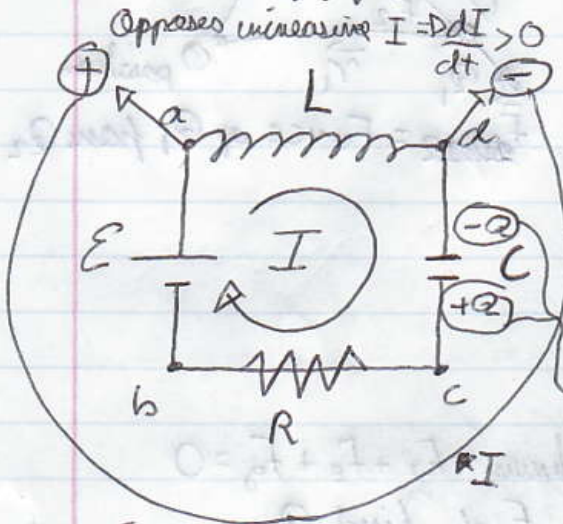 Opposes increasing I ⇒ dI/dt > 0
+ -
a L d
ℰ I -Q C
+Q
b R c
I